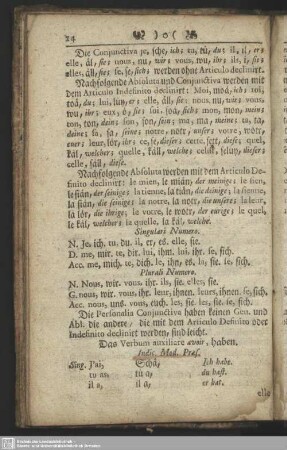 24 )o(
Die Conjunctiva je, sche, ich; tu, tü, du; il, il, er;
elle, äl, sie; nous, nu, wir; vous, wu, ihr; ils, i, sie;
elles, äll, sie; se, se, sich; werden ohne Articulo declinirt.
Nachfolgende Absoluta und Conjunctiva werden mit
dem Articulo Indefinito declinirt: Moi, moä, ich; toi,
toä, du; lui, lüi, er; elle, äll, sie; nous, nu, wir; vous,
wu, ihr; eux, ö, sie; soi, soä, sich; mon, mon, mein;
ton, ton, dein; son, son, sein; ma, ma, meine; ta, ta,
deine; sa, sa, seine; notre, nott, unser; votre, wott,
euer; leur, lör, ihr; ce, se, dieser; cette, sett, diese; quel,
käl, welcher; quelle, käll, welche; celui, selui, dieser;
celle, säll, diese.
Nachfolgende Absoluta werden mit dem Articulo De-
finito declinirt: le mien, le miän, der meinige; le tien,
le tiän, der deinige; la tienne, la tiän, die deinige; la sienne,
la siän, die seinige; la notre, la nott, die unsere; la leur,
la lör, die ihrige; le votre, le wott, der eurige; le quel,
le käl, welcher; la quelle, la käl, welche.
Singulari Numero.
N. Je, ich. tu, du. il, er. es. elle, sie.
D. me, mir. te, dir. lui, ihm. lui, ihr. se, sich.
Acc. me, mich. te, dich. le, ihn, es. la, sie. se, sich.
Plurali Numero.
N. Nous, wir. vous, ihr. ils, sie. elles, sie.
G. nous, wir. vous, ihr. leur, ihnen. leurs, ihnen. se, sich.
Acc. nous, uns. vous, euch. les, sie. les, sie. se, sich.
Die Personalia Conjunctiva haben keinen Gen. und
Abl. die andere, die mit dem Articulo Definito oder
Indefinito declinirt werden, sind leicht.
Das Verbum auxiliare avoir, haben.
Indic. Mod. Præs.
Sing. J'ai, Schä, Ich habe.
tu as, tü a, du hast.
il a, il a, er hat.
elle